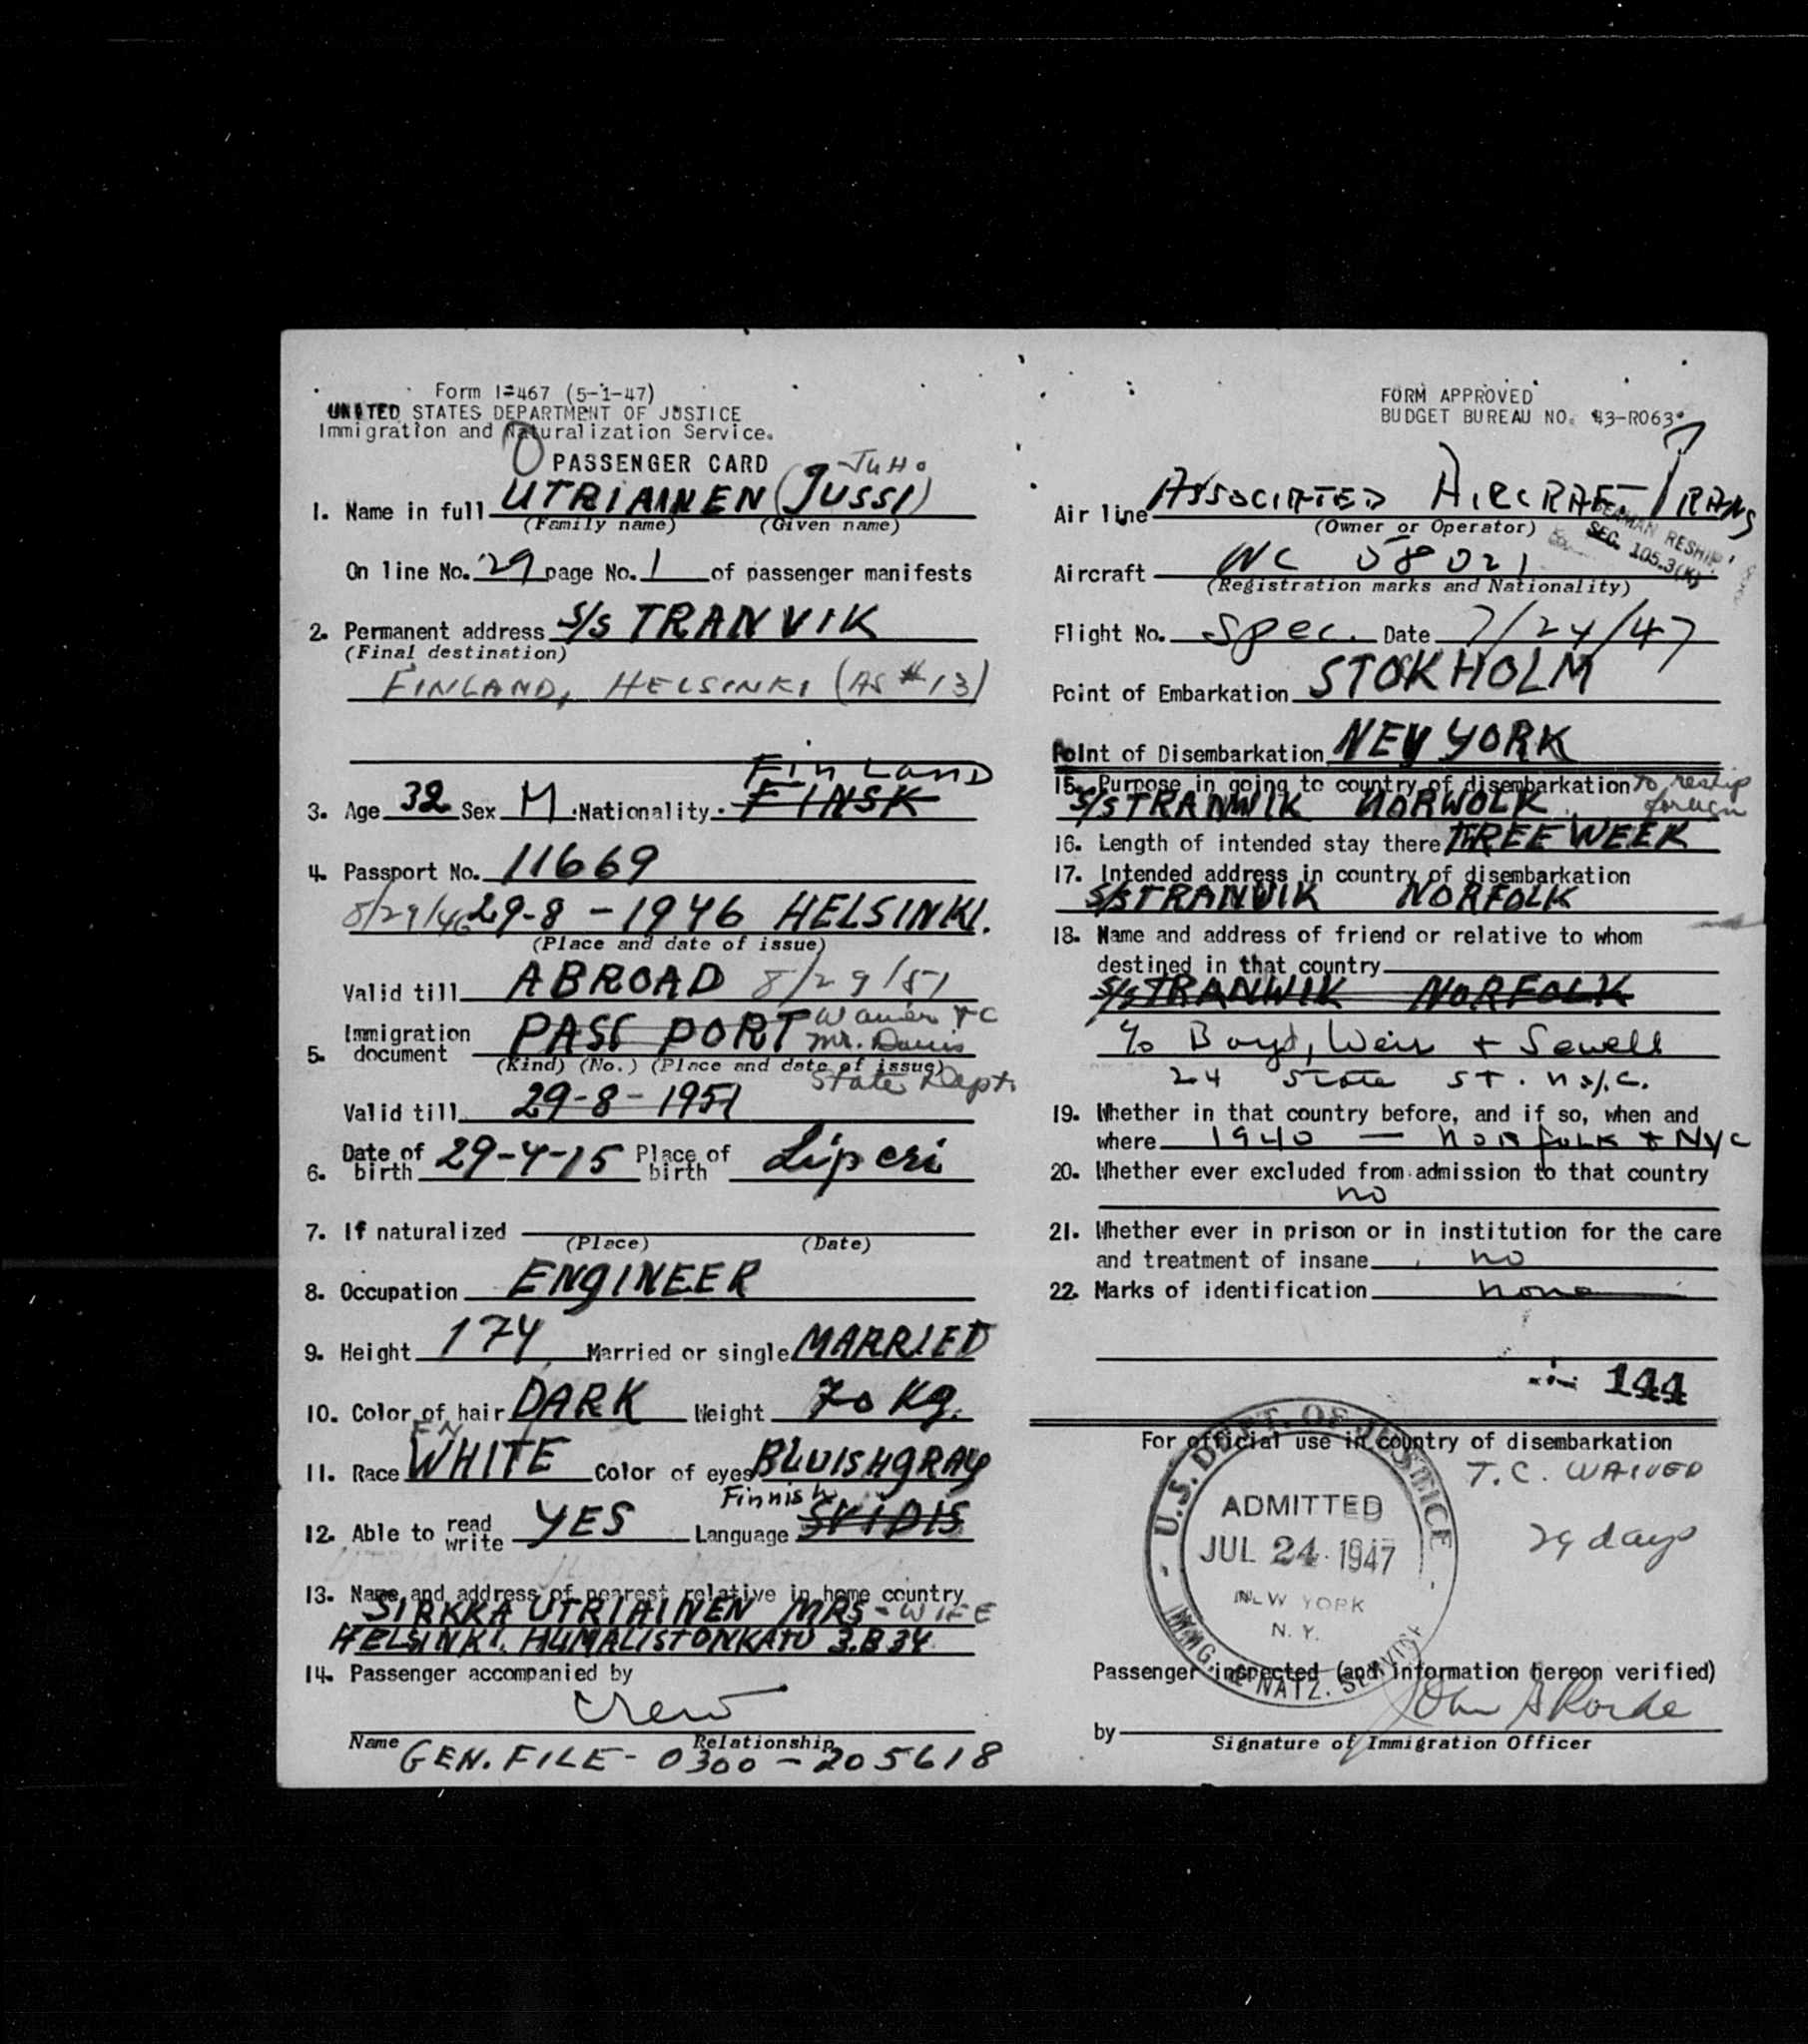 Form I-467 (5-1-47)
UNITED STATES DEPARTMENT OF JUSTICE
Immigration and Naturalization Service.
PASSENGER CARD
JUHO
1. Name in full UTRIAINEN (JUSSI)
(Family name) (Given name)
On line No. 29 page No. 1 of passenger manifests
2. Permanent address S/S TRANVIK
(Final destination)
FINLAND, HELSINKI (AS #13)
FINLAND
3. Age 32 Sex M Nationality FINSK
4. Passport No. 11669
8/29/46 29-8-1946 HELSINKI.
(Place and date of issue)
Valid till ABROAD 8/29/51
5. Immigration document PASS PORT Mr. Davis
(Kind) (No.) (Place and date of issue)
State Dept.
Valid till 29-8-1951
6. Date of birth 29-4-15 Place of birth Liperi
7. If naturalized
(Place) (Date)
8. Occupation ENGINEER
9. Height 174 Married or single MARRIED
10. Color of hair DARK Weight 70 Kg.
FN
11. Race WHITE Color of eyes BLUISHGRAY
Finnish
12. Able to read write YES Language SVIDIS
13. Name and address of nearest relative in home country
SIRKKA UTRIAINEN MRS - WIFE
HELSINKI. HUMALISTONKATU 3.B 34
14. Passenger accompanied by
Crew
Name Relationship
GEN. FILE - 0300 - 205618
FORM APPROVED
BUDGET BUREAU NO. 43-R063
Air line ASSOCIATED AIRCRAFT TRANS
(Owner or Operator)
SEAMAN RESHIP
SEC. 105.3(K)
Aircraft NC 58021
(Registration marks and Nationality)
Flight No. Spec. Date 7/24/47
Point of Embarkation STOKHOLM
Point of Disembarkation NEW YORK
15. Purpose in going to country of disembarkation to reship
foreign
S/S TRANWIK NORWOLK
16. Length of intended stay there TREE WEEK
17. Intended address in country of disembarkation
S/S TRANWIK NORFOLK
18. Name and address of friend or relative to whom
destined in that country
S/S TRANWIK NORFOLK
c/o Boyd, Weir + Sewell
24 State St. N.Y.C.
19. Whether in that country before, and if so, when and
where 1940 — NORFOLK + NYC
20. Whether ever excluded from admission to that country
no
21. Whether ever in prison or in institution for the care
and treatment of insane no
22. Marks of identification none
144
For official use in country of disembarkation
T.C. WAIVED
29 days
U.S. DEPT. OF JUSTICE
ADMITTED
JUL 24 1947
NEW YORK
N.Y.
IMMG. & NATZ. SERVICE
Passenger inspected (and information hereon verified)
by
Signature of Immigration Officer